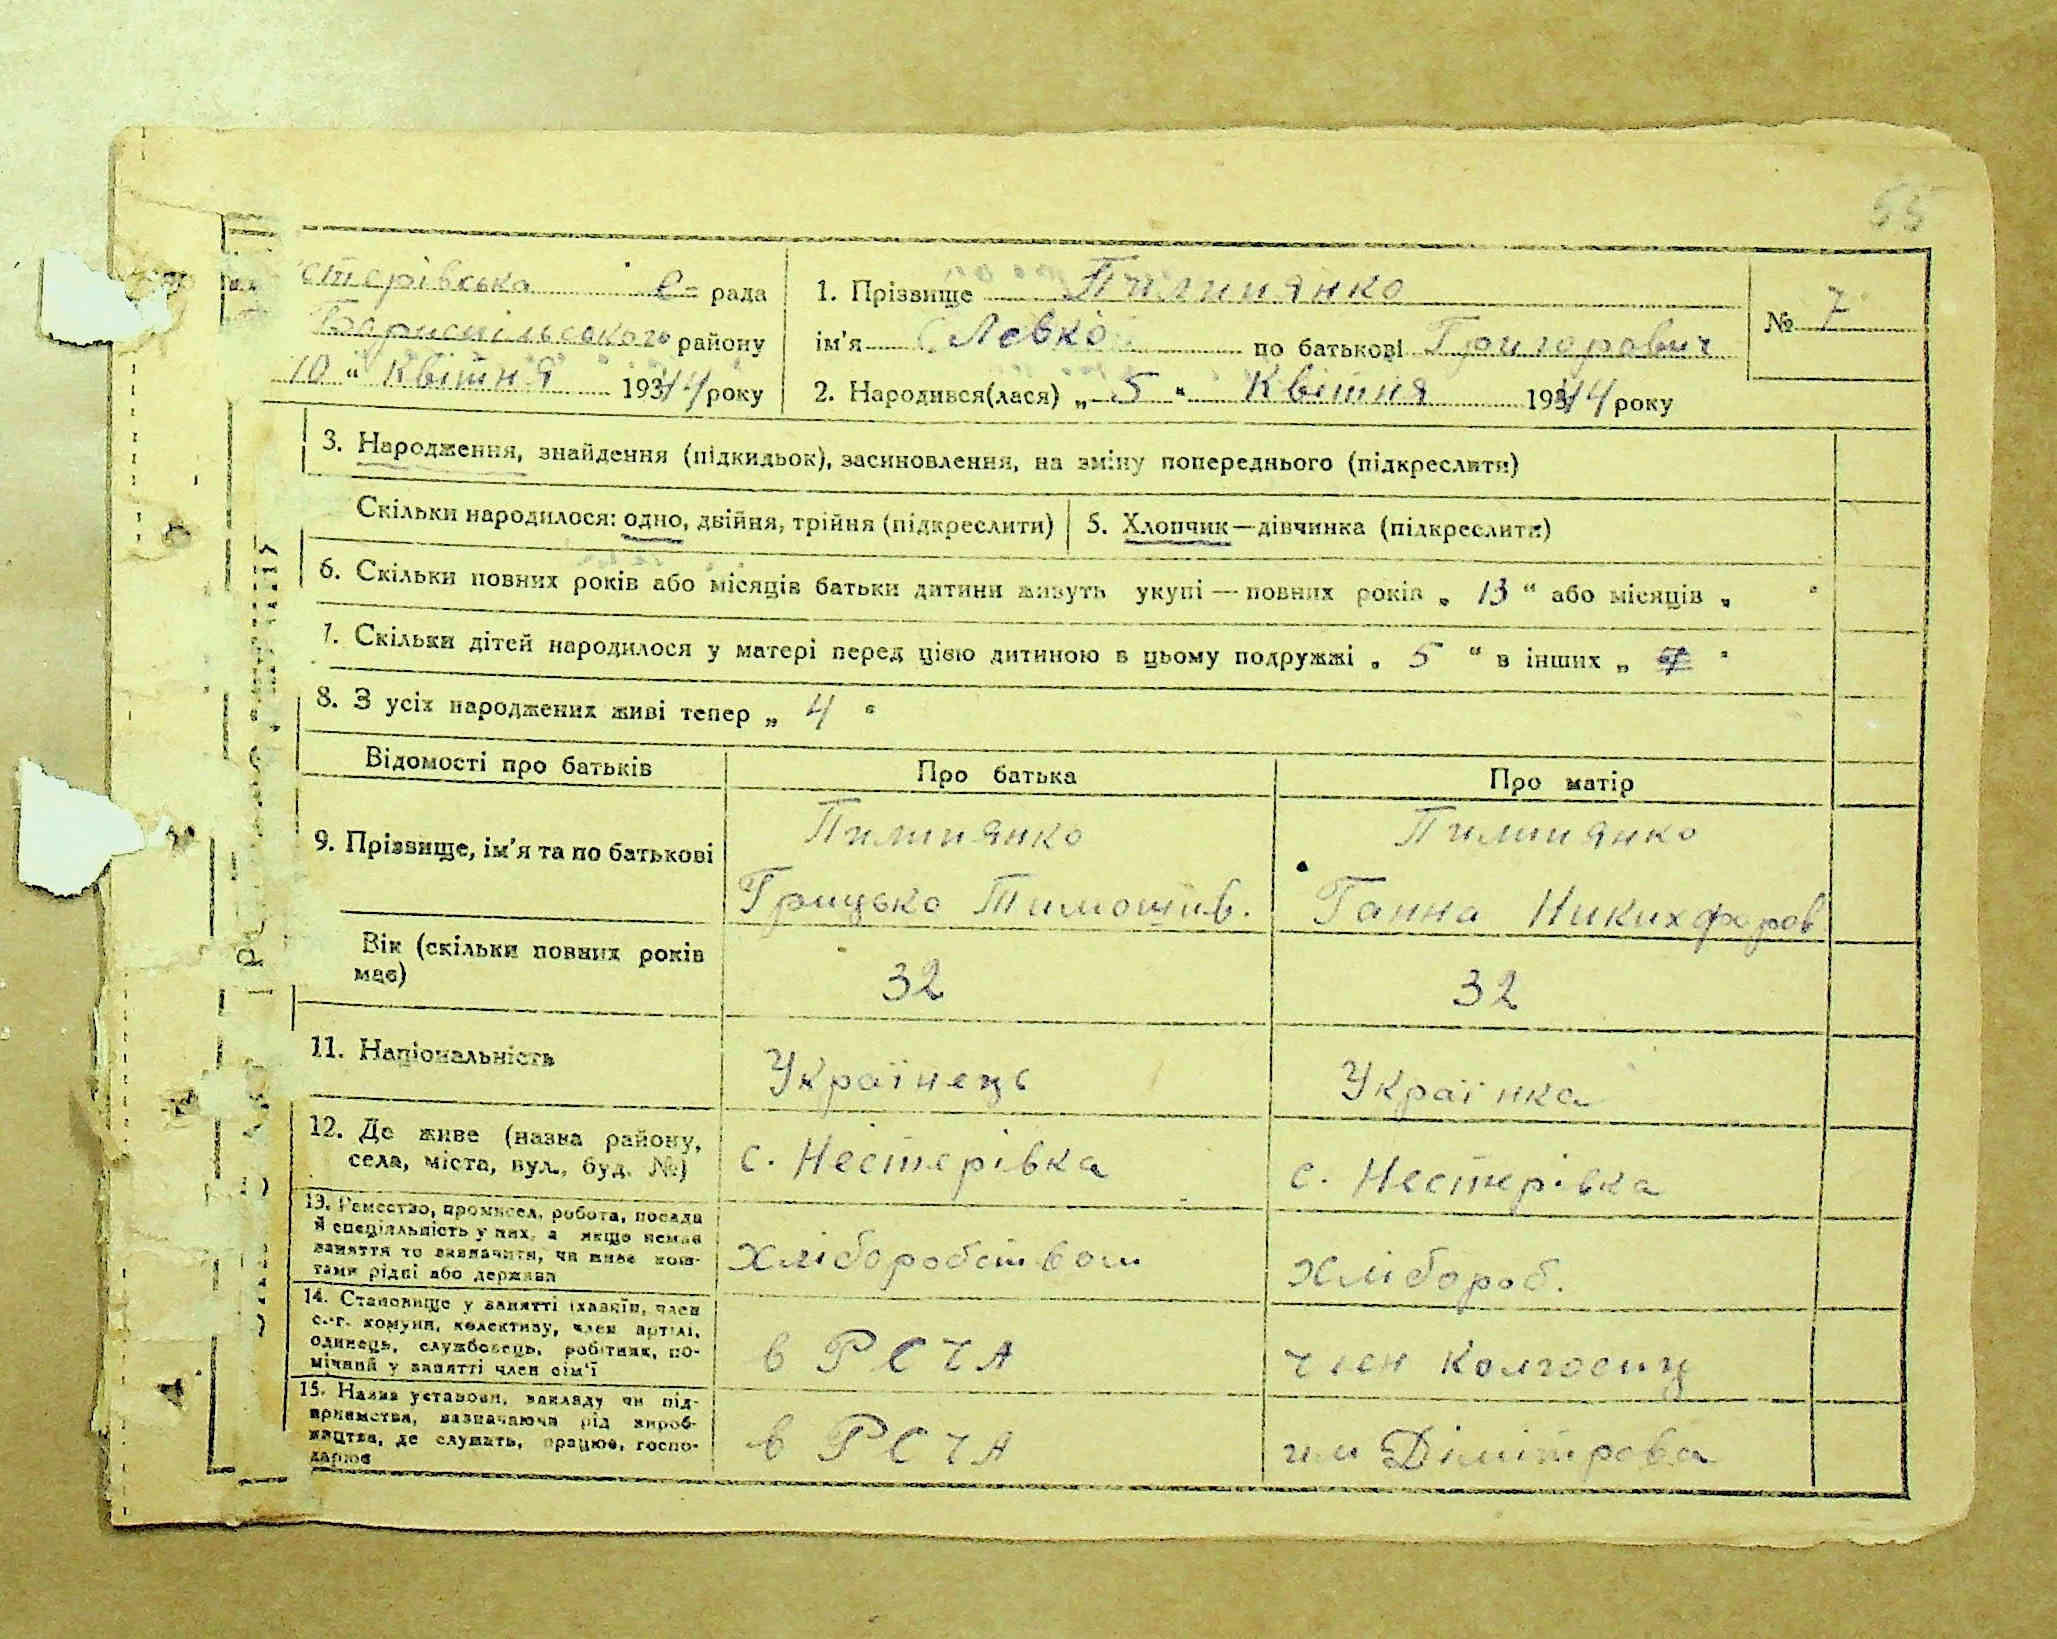 55
стерівська с- рада
Бориспільського району
10 " Квітня 1944 року
1. Прізвище Пилипянко
ім'я Левко по батькові Григорович
2. Народився(лася) „ 5 " Квітня 1944 року
№ 7
3. Народження, знайдення (підкидьок), засиновлення, на зміну попереднього (підкреслити)
Скільки народилося: одно, двійня, трійня (підкреслити)
5. Хлопчик—дівчинка (підкреслити)
6. Скільки повних років або місяців батьки дитини живуть укупі — повних років „ 13 " або місяців „ "
7. Скільки дітей народилося у матері перед цією дитиною в цьому подружжі „ 5 " в інших „ "
8. З усіх народжених живі тепер „ 4 "
Відомості про батьків
Про батька
Про матір
9. Прізвище, ім'я та по батькові
Пилипянко
Грицько Тимошив.
Пилипянко
Ганна Никихфоров
Вік (скільки повних років
має)
32
32
11. Національність
Українець
Українка
12. Де живе (назва району,
села, міста, вул., буд. №)
с. Нестерівка
с. Нестерівка
13. Ремество, промисел, робота, посада
й спеціяльність у них, а якщо немає
заняття то зазначити, чи живе кош-
тами рідні або держави
хліборобством
хлібороб.
14. Становище у занятті (хазяїн, член
с.-г. комуни, колективу, член артілі,
одинець, службовець, робітник, по-
мічний у занятті член сім'ї
в РСЧА
член колгоспу
15. Назва установи, закладу чи під-
приємства, зазначаючи рід вироб-
ництва, де служить, працює, госпо-
дарює
в РСЧА
им Дімітрова